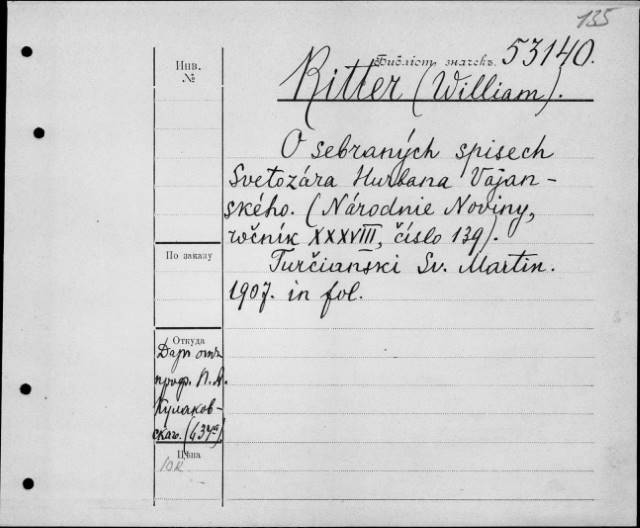 135
Инв.
№
Библіот. значекъ. 53140.
Ritter (William).
O sebraných spisech
Svetozára Hurbana Vajan-
ského. (Národnie Noviny,
ročník XXXVIII, číslo 139).
Turčianski Sv. Martin.
1907. in fol.
По заказу
Откуда
Даръ отъ
проф. П. А.
Кулаков-
скаго.
Цѣна
10к